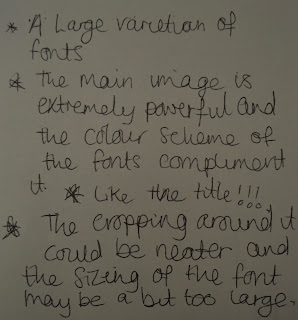 * A Large varietion of
fonts
* The main image is
extremely powerful and
the colour scheme of
the fonts compliment
it. * Like the title!!!
* The cropping around it
could be neater and
the sizing of the font
may be a bit too large.